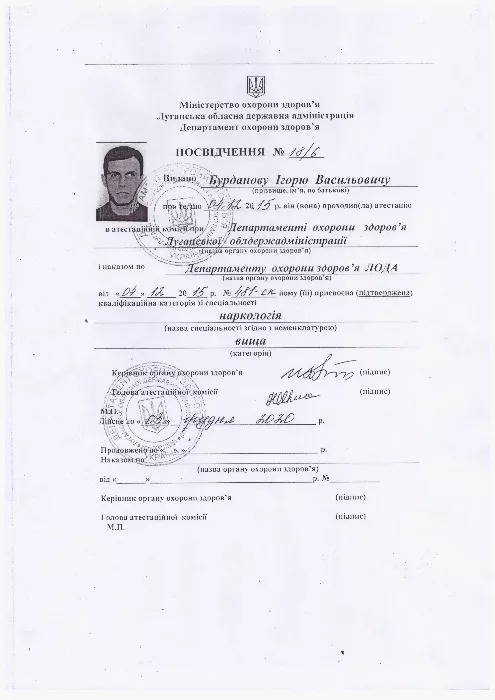 Міністерство охорони здоров'я
Луганська обласна державна адміністрація
Департамент охорони здоров'я
ПОСВІДЧЕННЯ № 18/6
Видано Бурданову Ігорю Васильовичу
(прізвище, ім'я, по батькові)
про те, що 04.12 2015 р. він (вона) проходив(ла) атестацію
в атестаційній комісії при Департаменті охорони здоров'я
Луганської облдержадміністрації
(назва органу охорони здоров'я)
і наказом по Департаменту охорони здоров'я ЛОДА
(назва органу охорони здоров'я)
від «04» 12 2015 р. № 481-ск йому (їй) присвоєна (підтверджена)
кваліфікаційна категорія зі спеціальності
наркологія
(назва спеціальності згідно з номенклатурою)
вища
(категорія)
Керівник органу охорони здоров'я (підпис)
Голова атестаційної комісії (підпис)
М.П.
Дійсне до « » грудня 2020 р.
Продовжено до « » р.
Наказом по
(назва органу охорони здоров'я)
від « » р. №
Керівник органу охорони здоров'я (підпис)
Голова атестаційної комісії (підпис)
М.П.